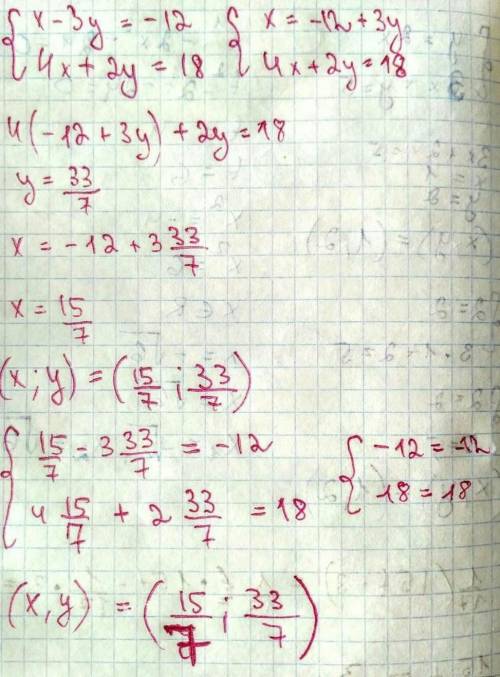 { x - 3y = -12   { x = -12 + 3y
{ 4x + 2y = 18   { 4x + 2y = 18
4(-12 + 3y) + 2y = 18
y = 33/7
x = -12 + 3 33/7
x = 15/7
(x ; y) = (15/7 ; 33/7)
{ 15/7 - 3 33/7 = -12   { -12 = -12
{ 4 15/7 + 2 33/7 = 18   { 18 = 18
(x, y) = (15/7 ; 33/7)